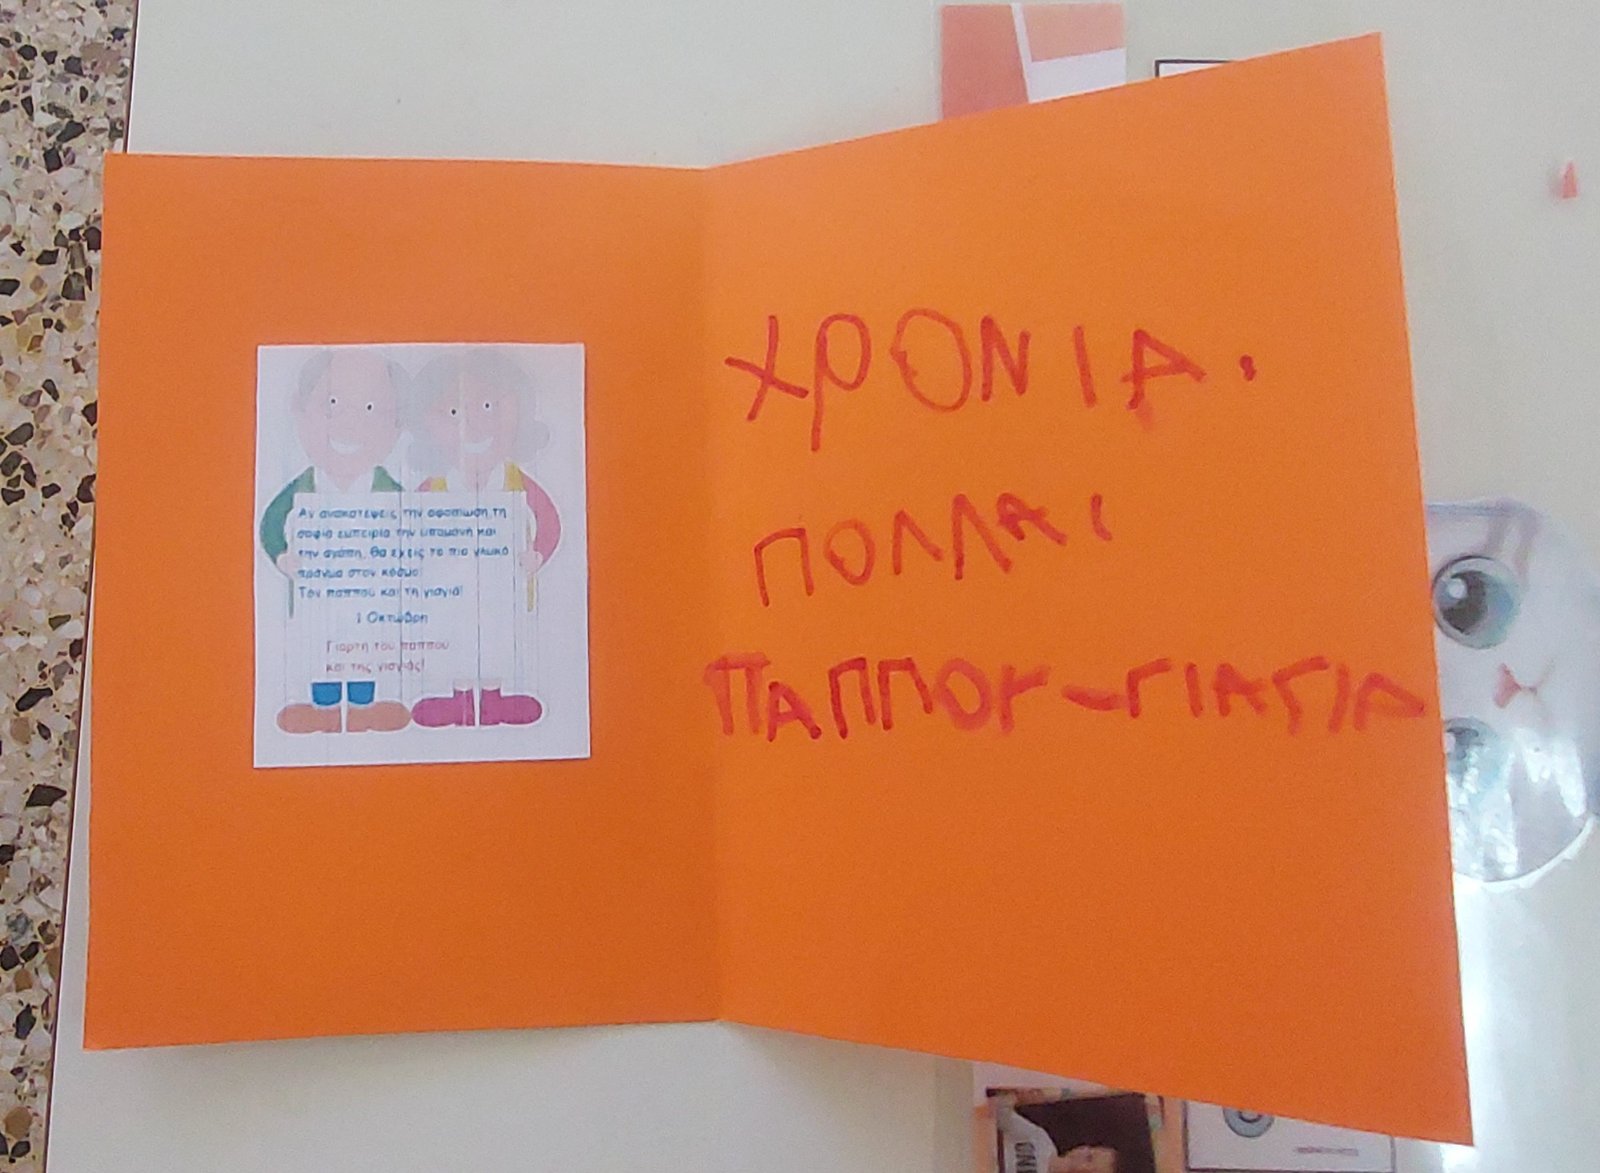 Αν ανακατέψεις την αφοσίωση,τη
σοφία εμπειρία την υπομονή και
την αγάπη, θα έχεις το πιο γλυκό
πράγμα στον κόσμο!
Τον παππού και τη γιαγιά!
1 Οκτώβρη
Γιορτή του παππού
και της γιαγιάς!
ΧΡΟΝΙΑ.
ΠΟΛΛΑ,
ΠΑΠΠΟΥ-ΓΙΑΓΙΑ